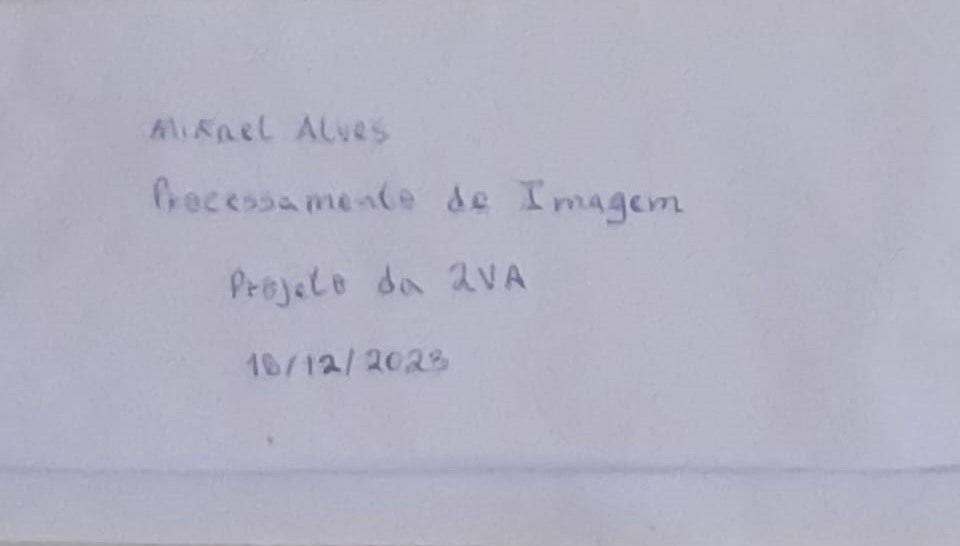 Mikael Alves
Processamento de Imagem
Projeto da 2VA
18/12/2023